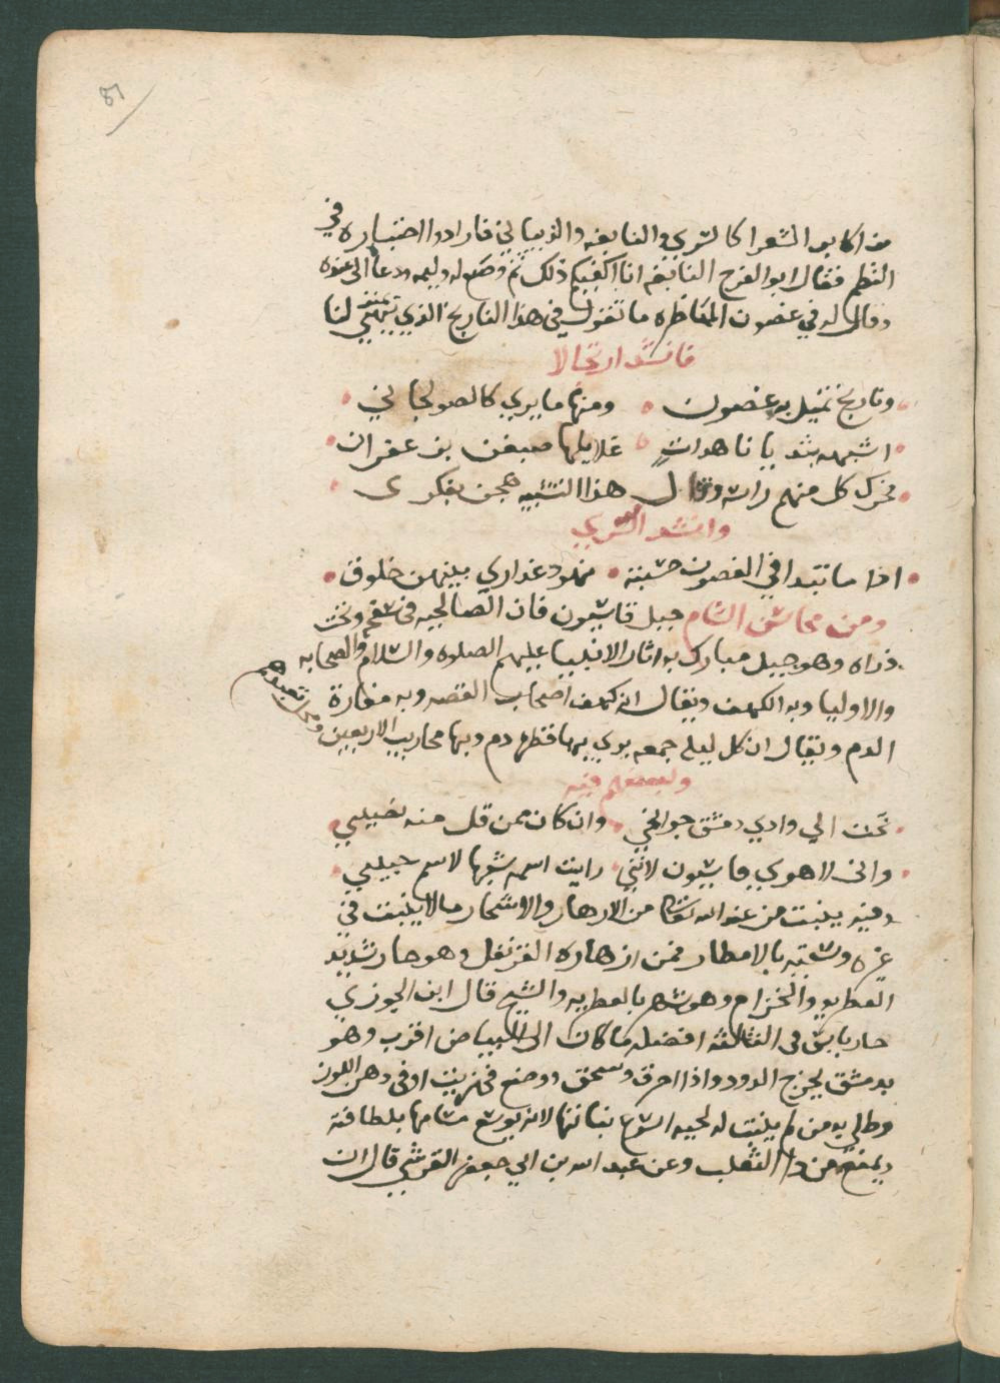 من اكابر الشعرا كالسري والنابغه والذبياني فارادوا اختباره في
النظم فقال ابو الفرج النابغه انا اكفيكم ذلك ثم وضع له وليمه ودعا الى عنده
وقال له في غضون المناظره ما تقول في هذا النارنج الذي لنا
فانشد ارتجالا
ونارنج تميل به غصون ومنها ما يرى كالصولجاني
اشبهه بثديا ناهدات غلايلها صبغن بزعفران
فحرك كل منهم راسه وقال هذا التشبيه عجن بفكرى
وانشد السري
اذا ما تبدا في الغصون حسبته نهود عذاري بينهن خلوق
ومن محاسن الشام جبل قاسيون فان الصالحيه في سفحه وتحت
ذراه وهو جبل مبارك به اثار الانبيا عليهم الصلوه والسلام والصحابه
والاوليا وبه الكهف ويقال انه كهف اصحاب القصه وبه مغارة
الدم ويقال ان كل ليله جمعه يري بها قطره دم وبها محاريب الاربعين ومحل تعبدهم
ولبعضهم فيه
تحن الي وادي دمشق جوانحي وان كان ممن قل منه نصيبي
واني لاهوي قاسيون لانني رايت اسمه شبها لاسم حبيبي
وفيه ينبت من عند الله تعالى من الازهار والاشجار ما لا ينبت في
غيره ويشتبه بالامطار فمن ازهاره القرنفل وهو حار شديد
العطريه والخزام وهو مشهر بالعطريه والشيح قال ابن الجوزي
حار يابس في الثالثه افضله ما كان الى البياض اقرب وهو
بدمشق يخرج الدود واذا احرق وسحق ووضع في زيت او في دهن اللوز
وطلي به من لم ينبت له لحيه اسرع نباتها لانه يوسع مسامها بلطافته
ويمنع من دا الثعلب وعن عبد الله بن ابي جعفر القرشي قال ان